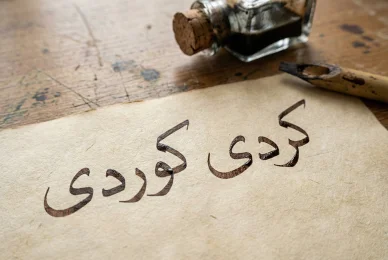 کردی کوردی